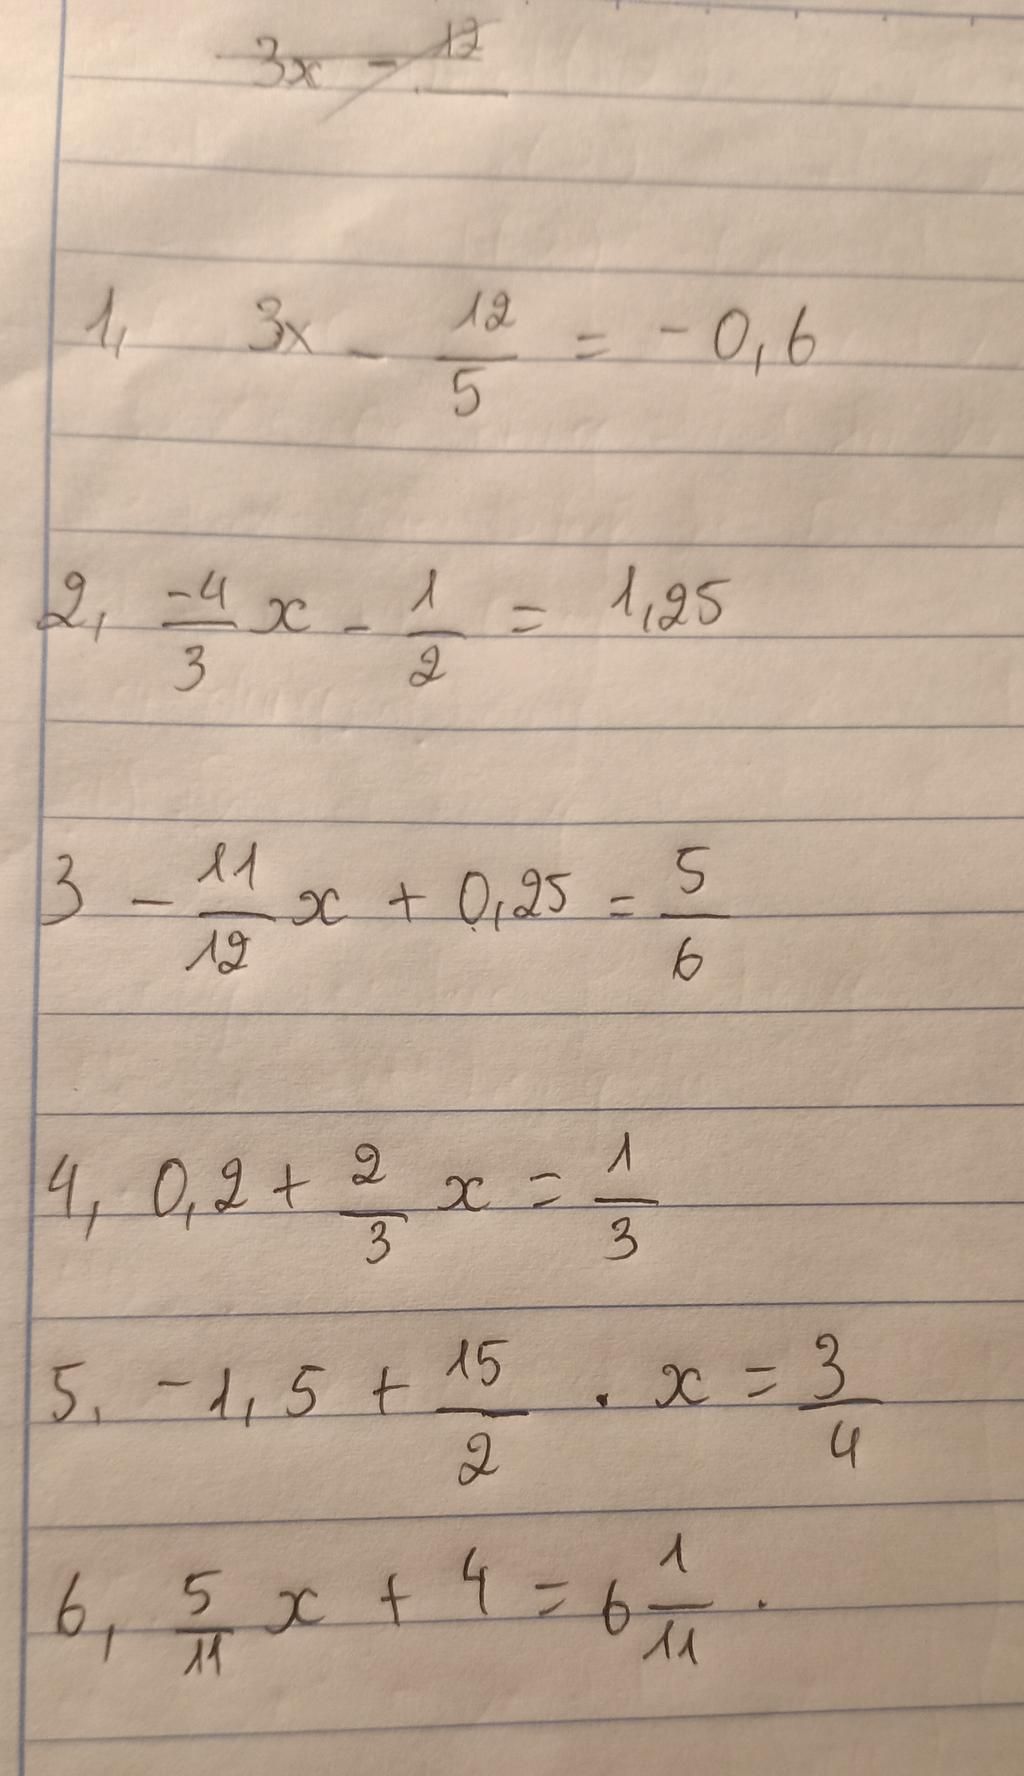 3x - 12
1, 3x - 12/5 = -0,6
2, -4/3 x - 1/2 = 1,25
3 - 11/12 x + 0,25 = 5/6
4, 0,2 + 2/3 x = 1/3
5. -1,5 + 15/2 . x = 3/4
6, 5/11 x + 4 = 6 1/11 .